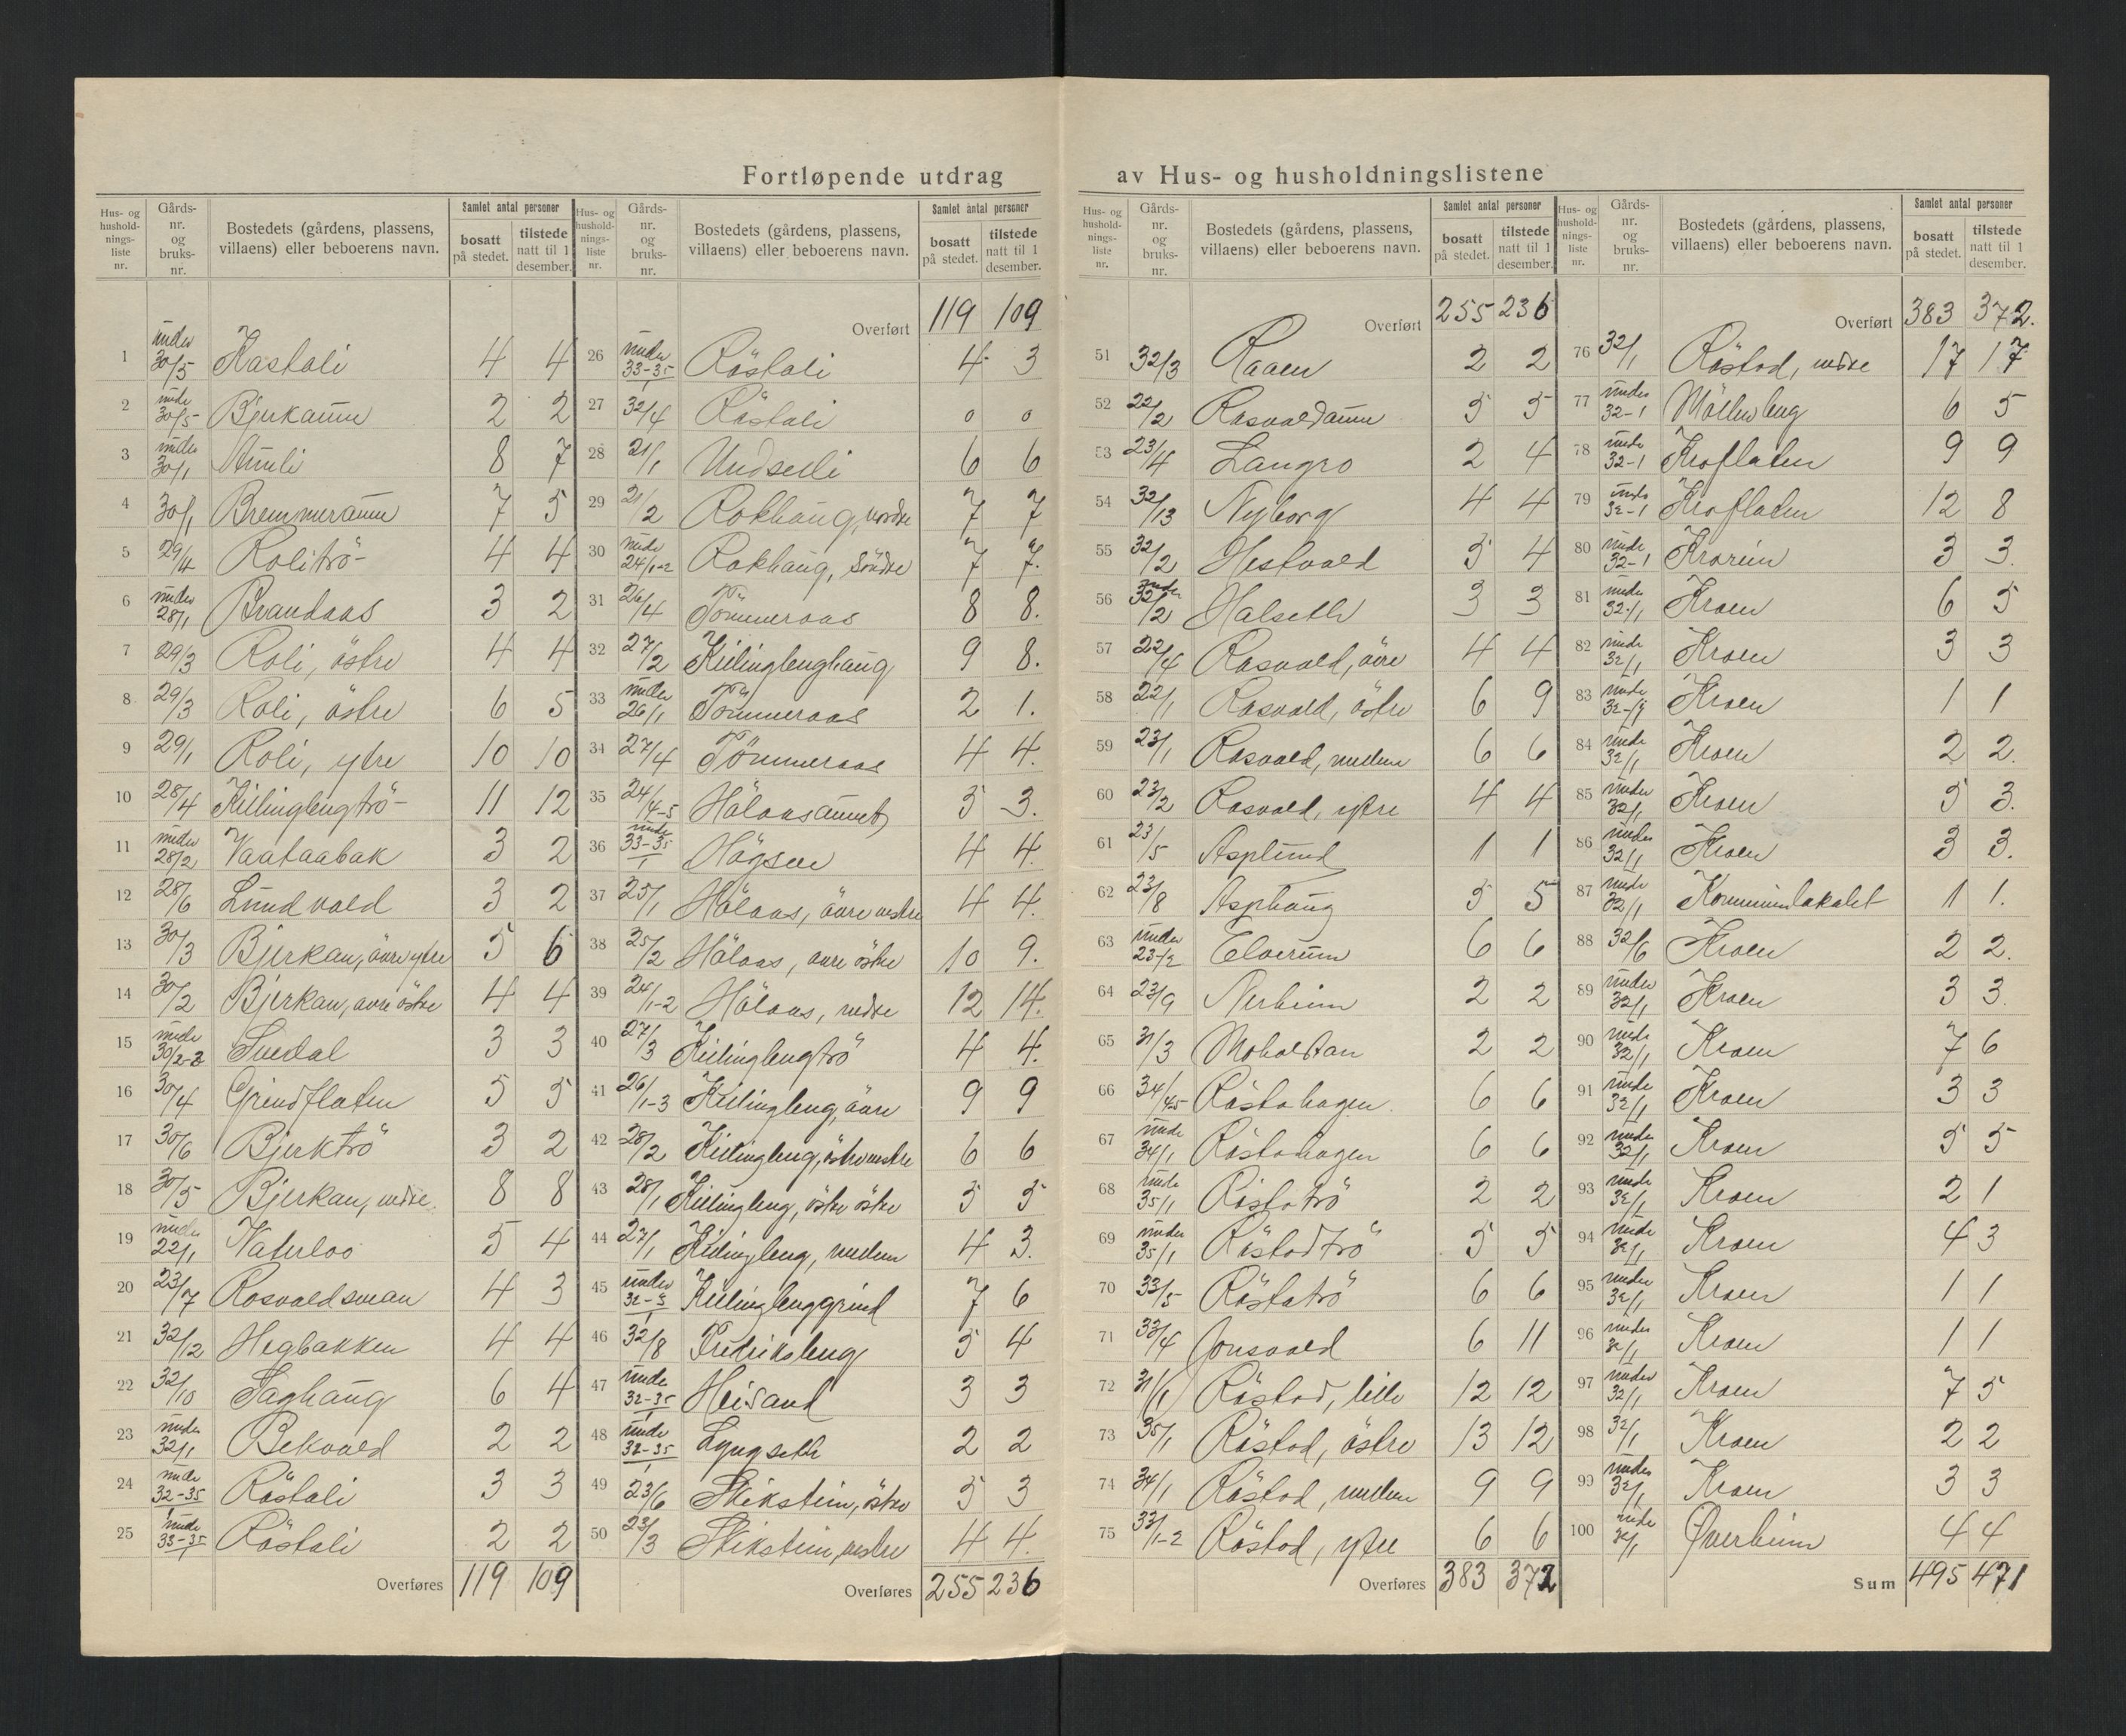 Fortløpende utdrag av Hus- og husholdningslistene
Hus- og husholdnings-liste nr. | Gårds-nr. og bruks-nr. | Bostedets (gårdens, plassens, villaens) eller beboerens navn. | Samlet antal personer bosatt på stedet. | tilstede natt til 1 desember.
1 under 30/5 Kastali 4 4
2 under 30/5 Bjerkaunn 2 2
3 under 30/1 Aunli 8 7
4 30/1 Bremmeraunn 7 5
5 29/4 Rolitrö 4 4
6 under 28/1 Brandaas 3 2
7 29/3 Roli, östre 4 4
8 29/3 Roli, östre 6 5
9 29/1 Roli, ytre 10 10
10 28/4 Killinglengtrö 11 12
11 under 28/2 Vaataabak 3 2
12 28/6 Lundvald 3 2
13 30/3 Bjerkan, övre ytre 5 6
14 30/2 Bjerkan, övre östre 4 4
15 under 30/2-3 Suedal 3 3
16 30/4 Grindflaten 5 5
17 30/6 Bjerktrö 3 2
18 30/5 Bjerkan, nedre. 8 8
19 under 22/1 Vaterloo 5 4
20 23/7 Rosvoldsman 4 3
21 32/12 Hegbakken 4 4
22 32/10 Saghaug 6 4
23 under 32/1 Bekvold 2 2
24 under 32-35 Röstali 3 3
25 under 33-35/1 Röstali 2 2
Overføres 119 109
Overført 119 109
26 under 33-35/1 Röstali 4 3
27 32/4 Röstali 0 0
28 21/1 Undseili 6 6
29 21/2 Rokhaug, nordre 7 7
30 under 24/1-2 Rokhaug, Söndre 7 7.
31 26/4 Tömmeraas 8 8.
32 27/2 Killinglenghaug 9 8.
33 under 26/1 Tömmeraas 2 1.
34 27/4 Tömmeraas 4 4.
35 24/4-5 Hölaasaunet 5 3.
36 under 33-35/1 Högsve 4 4.
37 25/1 Hölaas, övre vestre 4 4.
38 25/2 Hölaas, övre östre 10 9.
39 24/1-2 Hölaas, nedre 12 14.
40 27/3 Killinglengtrö 4 4.
41 26/1-3 Killingleng, övre 9 9
42 28/2 Killingleng, östre vestre 6 6
43 28/1 Killingleng, östre östre 5 5
44 27/1 Killingleng, mellem 4 3.
45 under 32-35/1 Killinglenggrind 7 6
46 32/8 Fredriksleng 5 4
47 under 32-35/1 Heisand 3 3
48 under 32-35/1 Lyngseth 2 2
49 23/6 Stikstein, östre 5 3
50 23/3 Stikstein, vestre 4 4.
Overføres 255 236
Overført 255 236
51 32/3 Raaen 2 2
52 22/2 Rosvoldaunn 5 5
53 23/4 Langro 2 4
54 32/13 Nyborg 4 4
55 32/2 Hestvold 5 4
56 under 32/2 Halseth 3 3
57 22/4 Rosvold, övre 4 4
58 22/1 Rosvold, östre 6 9
59 23/1 Rosvold, mellem 6 6
60 23/2 Rosvold, ytre 4 4
61 23/5 Asplund 1 1
62 23/8 Asphaug 5 5
63 under 23/2 Elverum 6 6
64 23/9 Nerheim 2 2
65 31/3 Moholdtan 2 2
66 34/4-5 Röstohagen. 6 6
67 under 34/1 Röstohagen 6 6
68 under 35/1 Röstotrö 2 2
69 under 35/1 Röstadtrö 5 5
70 33/5 Röstatrö 6 6
71 33/4 Jonsvold 6 11
72 31/1 Röstad, lille 12 12
73 35/1 Röstad, östre 13 12
74 34/1 Röstad, mellem 9 9
75 33/1-2 Röstad, ytre 6 6
Overføres 383 372
Overført 383 372.
76 32/1 Röstad, nedre 17 17
77 under 32-1 Möllenberg 6 5
78 under 32-1 Kroflaten 9 9
79 under 32-1 Kroflaten 12 8
80 under 32-1 Kroreim 3 3.
81 under 32/1 Kroen 6 5
82 under 32/1 Kroen 3 3
83 under 32-1 Kroen 1 1
84 under 32/1 Kroen 2 2.
85 under 32/1 Kroen 5 3.
86 under 32/1 Kroen 3 3.
87 under 32/1 Kommunelokalet 1 1.
88 32/6 Kroen 2 2.
89 under 32/1 Kroen 3 3.
90 under 32/1 Kroen 7 6
91 under 32/1 Kroen 3 3
92 under 32/1 Kroen 5 5
93 under 32/1 Kroen 2 1
94 under 32/1 Kroen 4 3
95 under 32/1 Kroen 1 1
96 under 32/1 Kroen 1 1
97 under 32/1 Kroen 7 5
98 32/1 Kroen 2 2
99 under 32/1 Kroen 3 3
100 under 32/1 Øverheim 4 4
Sum 495 471